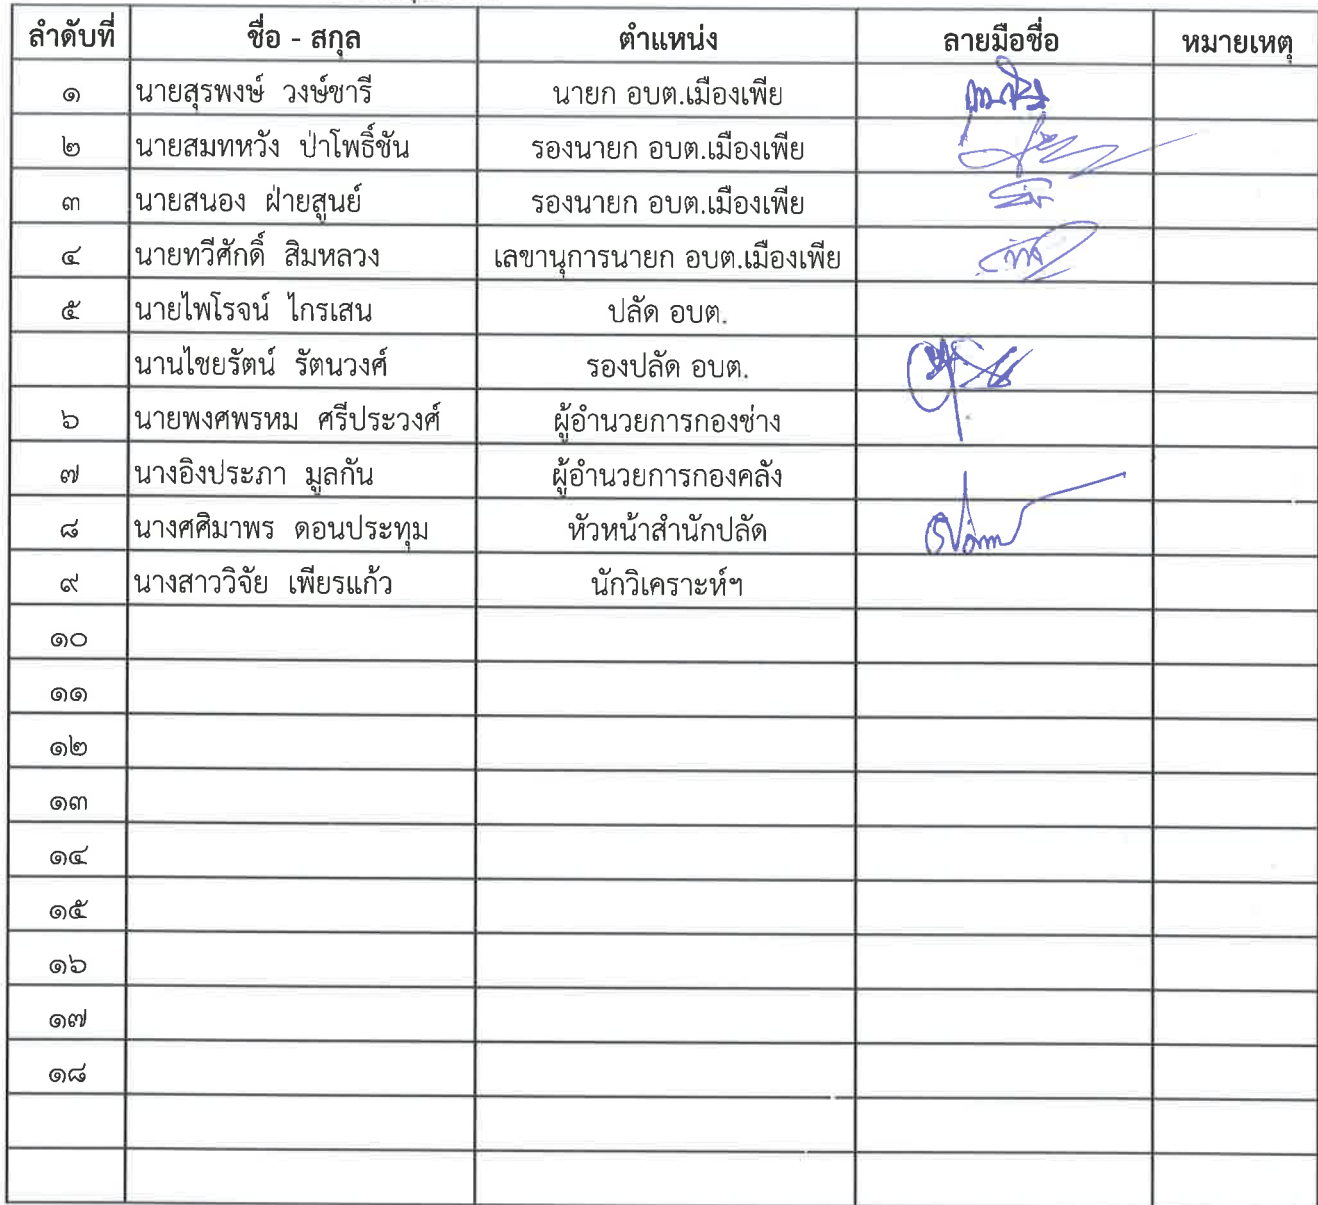 ลำดับที่ ชื่อ - สกุล ตำแหน่ง ลายมือชื่อ หมายเหตุ
๑ นายสุรพงษ์ วงษ์ชารี นายก อบต.เมืองเพีย
๒ นายสมทหวัง ป่าโพธิ์ชัน รองนายก อบต.เมืองเพีย
๓ นายสนอง ฝ่ายสูนย์ รองนายก อบต.เมืองเพีย
๔ นายทวีศักดิ์ สิมหลวง เลขานุการนายก อบต.เมืองเพีย
๕ นายไพโรจน์ ไกรเสน ปลัด อบต.
นานไชยรัตน์ รัตนวงศ์ รองปลัด อบต.
๖ นายพงศพรหม ศรีประวงศ์ ผู้อำนวยการกองช่าง
๗ นางอิงประภา มูลกัน ผู้อำนวยการกองคลัง
๘ นางศศิมาพร ดอนประทุม หัวหน้าสำนักปลัด
๙ นางสาววิจัย เพียรแก้ว นักวิเคราะห์ฯ
๑๐
๑๑
๑๒
๑๓
๑๔
๑๕
๑๖
๑๗
๑๘